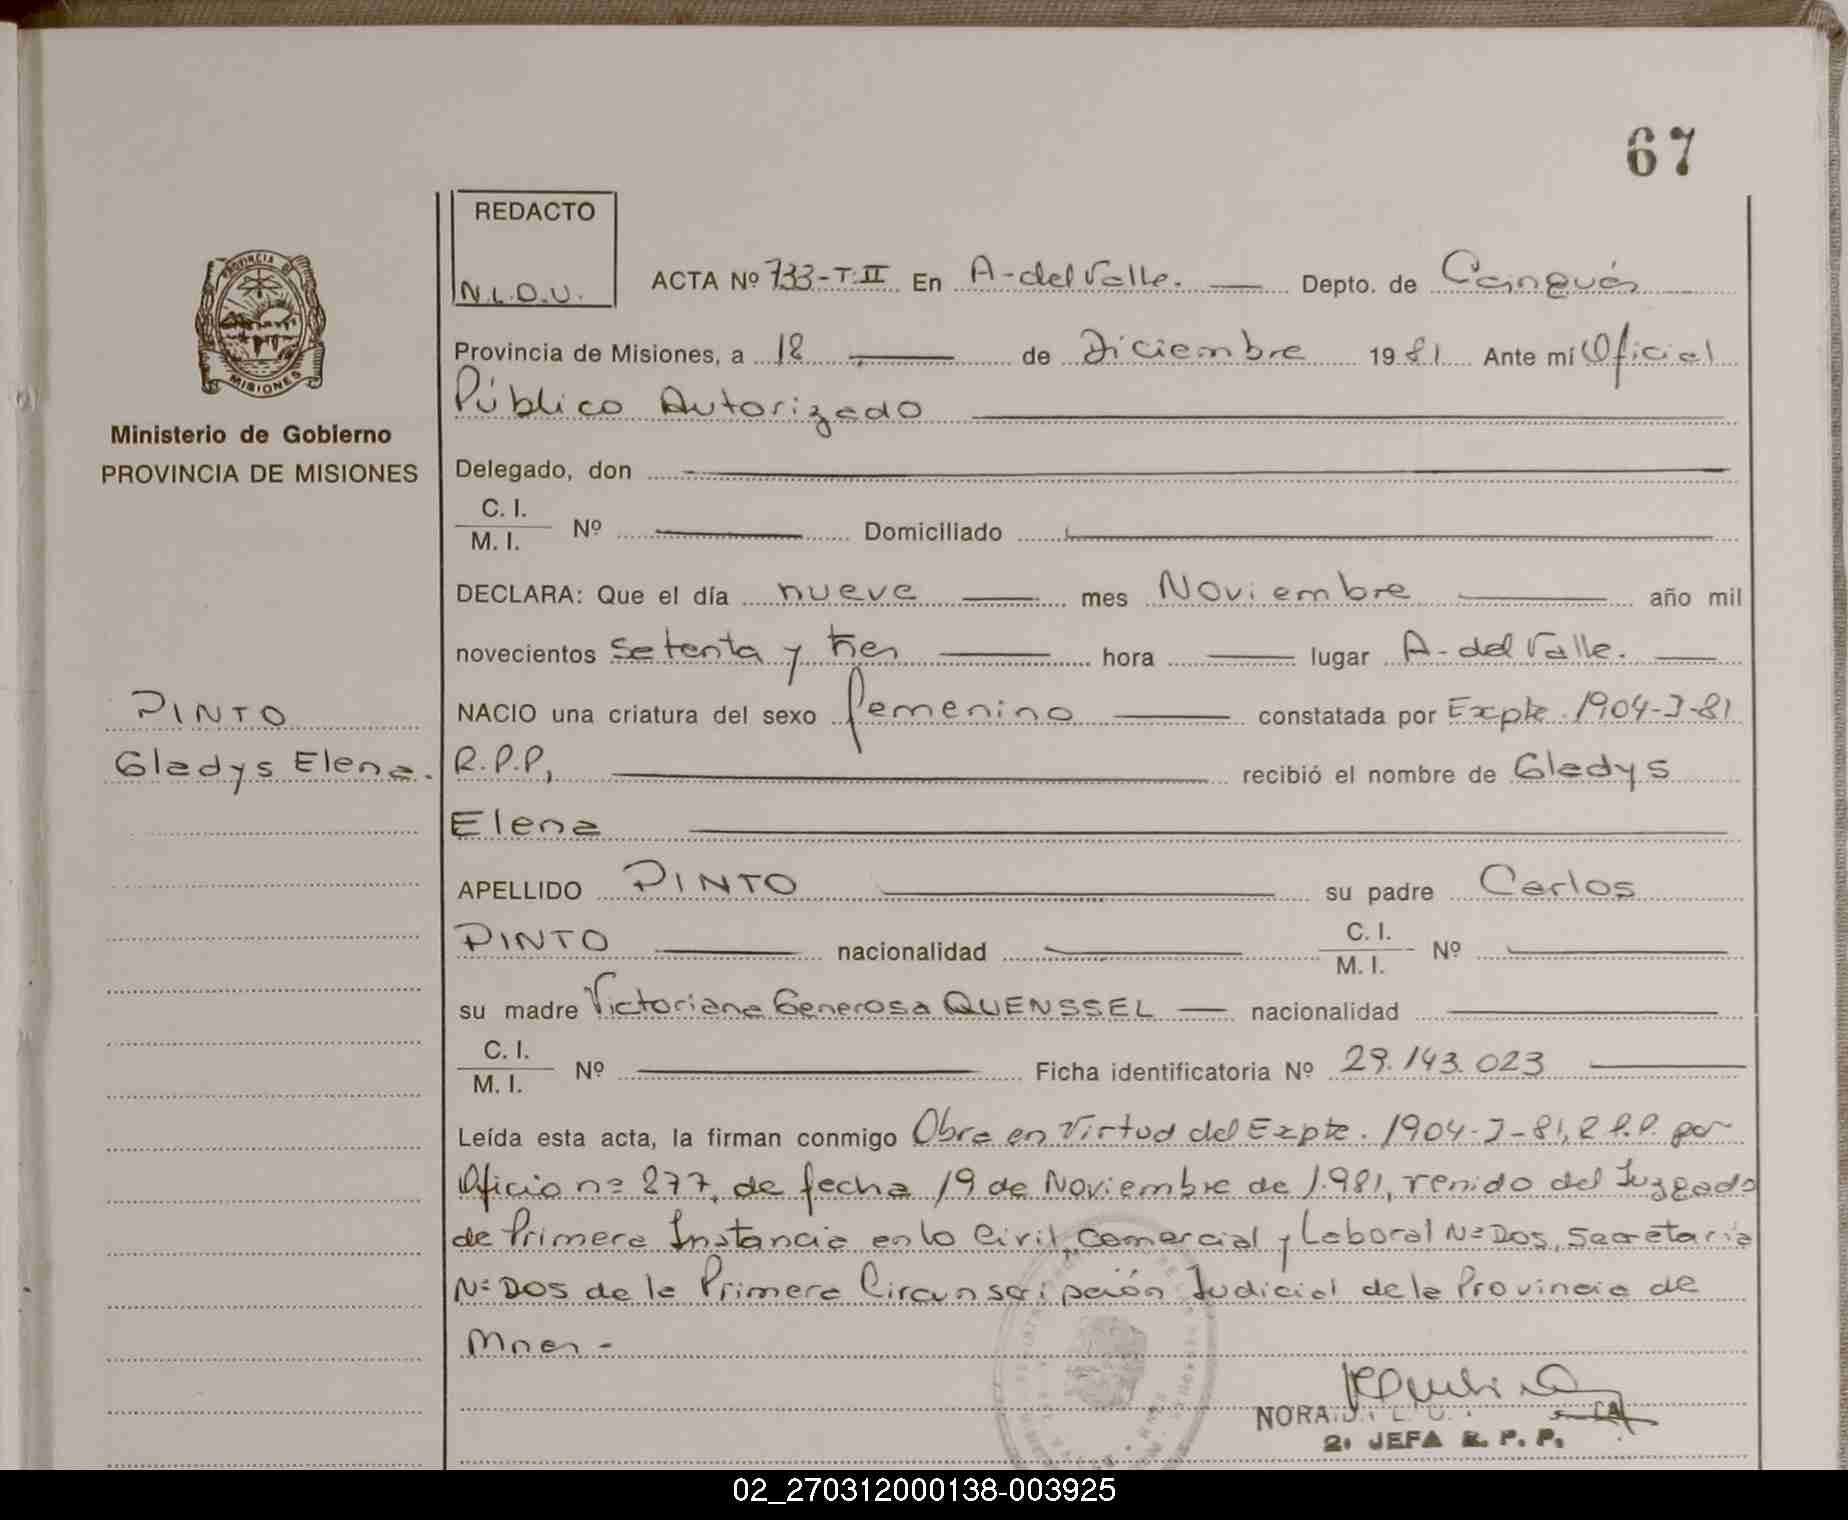 67
REDACTO
N.L.D.U.
ACTA Nº 733-T.II En A-del Valle. Depto. de Cainguás
Provincia de Misiones, a 18 de Diciembre 1981 Ante mí Oficial
Público Autorizado
PROVINCIA DE
MISIONES
Ministerio de Gobierno
PROVINCIA DE MISIONES
Delegado, don
C. I.
M. I. Nº Domiciliado
DECLARA: Que el día nueve mes Noviembre año mil
novecientos setenta y tres hora lugar A-del Valle.
PINTO
Gladys Elena.
NACIO una criatura del sexo femenino constatada por Expte. 1904-J-81
R.P.P, recibió el nombre de Gladys
Elena
APELLIDO PINTO su padre Carlos
PINTO nacionalidad C. I. M. I. Nº
su madre Victoriana Generosa QUENSSEL nacionalidad
C. I.
M. I. Nº Ficha identificatoria Nº 29.143.023
Leída esta acta, la firman conmigo Obra en Virtud del Expte. 1904-J-81, R.P.P. por
Oficio nº 277, de fecha 19 de Noviembre de 1.981, venido del Juzgado
de Primera Instancia en lo Civil, Comercial y Laboral Nº Dos, Secretaria
Nº DOS de la Primera Circunscripción Judicial de la Provincia de
Mnes -
NORA
2ª JEFA R. P. P.
02_270312000138-003925